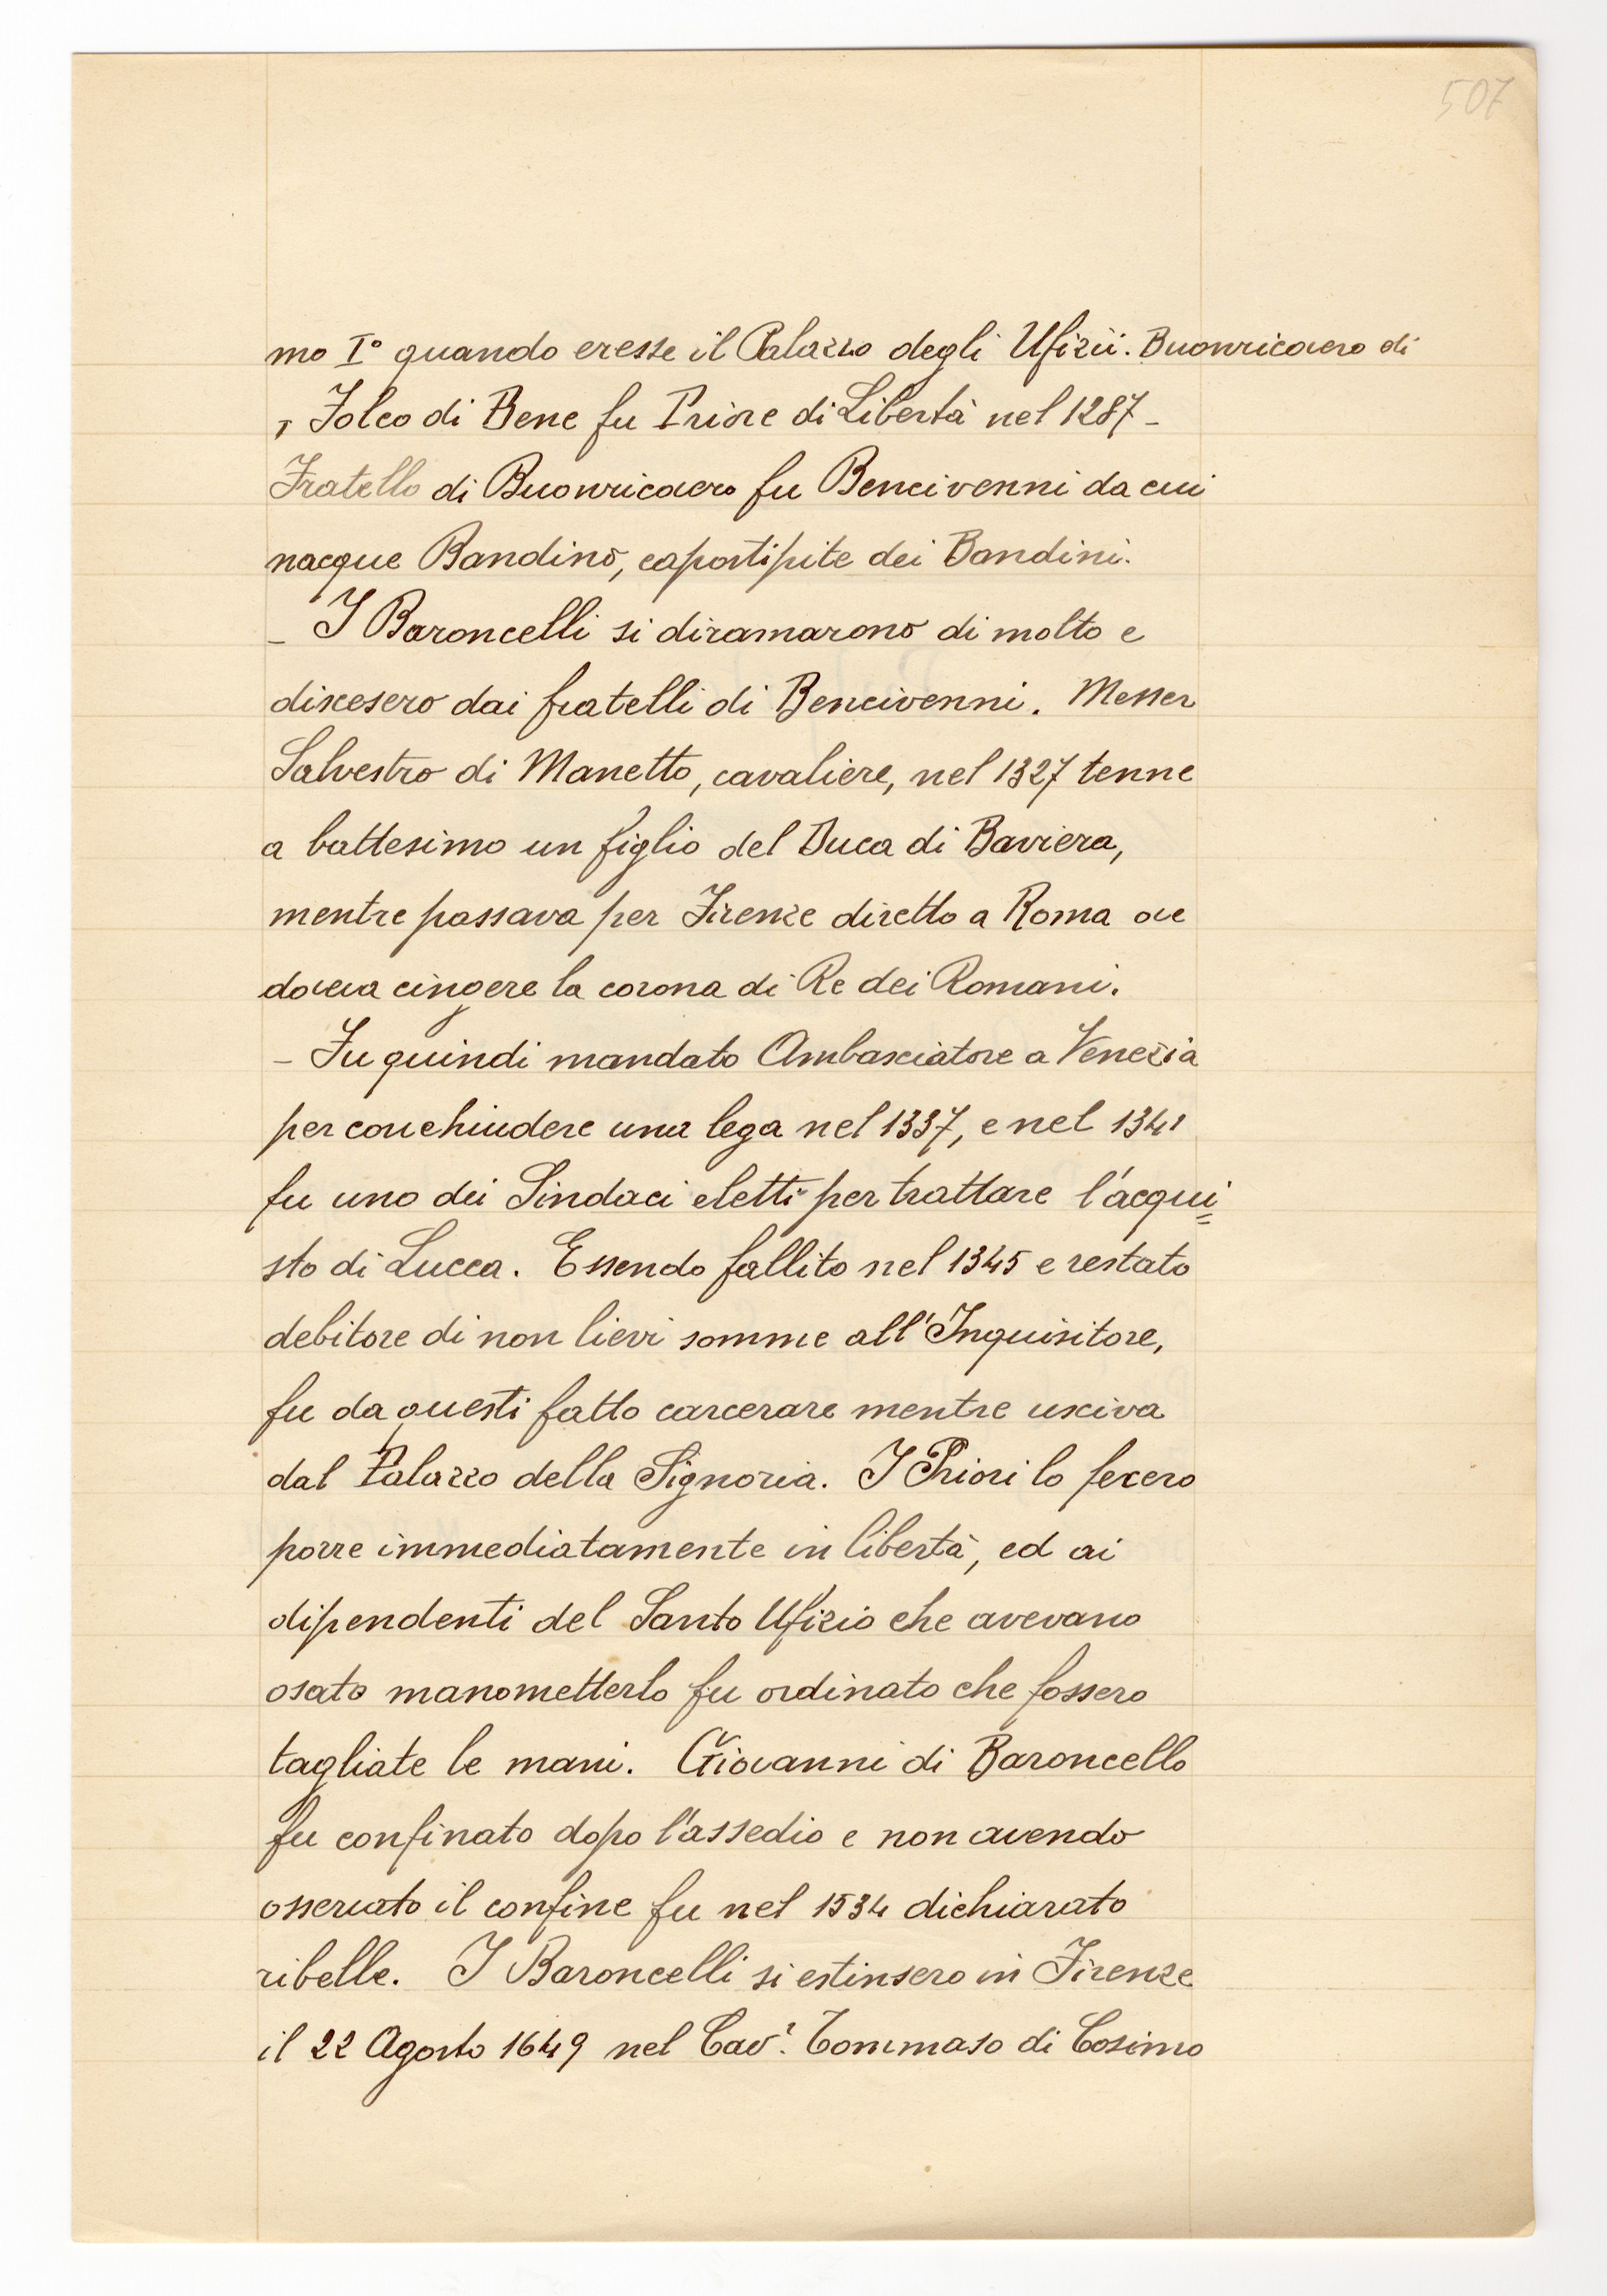 507
mo I° quando eresse il Palazzo degli Ufizii. Buonricovero di
Folco di Bene fu Priore di Libertà nel 1287 -
Fratello di Buonricovero fu Bencivenni da cui
nacque Bandino, capostipite dei Bandini.
- I Baroncelli si diramarono di molto e
discesero dai fratelli di Bencivenni. Messer
Salvestro di Manetto, cavaliere, nel 1327 tenne
a battesimo un figlio del Duca di Baviera,
mentre passava per Firenze diretto a Roma ove
doveva cingere la corona di Re dei Romani.
- Fu quindi mandato Ambasciatore a Venezia
per conchiudere una lega nel 1337, e nel 1341
fu uno dei Sindaci eletti per trattare l'acqui=
sto di Lucca. Essendo fallito nel 1345 e restato
debitore di non lievi somme all'Inquisitore,
fu da questi fatto carcerare mentre usciva
dal Palazzo della Signoria. I Priori lo fecero
porre immediatamente in libertà, ed ai
dipendenti del Santo Ufizio che avevano
osato manometterlo fu ordinato che fossero
tagliate le mani. Giovanni di Baroncello
fu confinato dopo l'assedio e non avendo
osservato il confine fu nel 1534 dichiarato
ribelle. I Baroncelli si estinsero in Firenze
il 22 Agosto 1649 nel Cav.r Tommaso di Cosimo